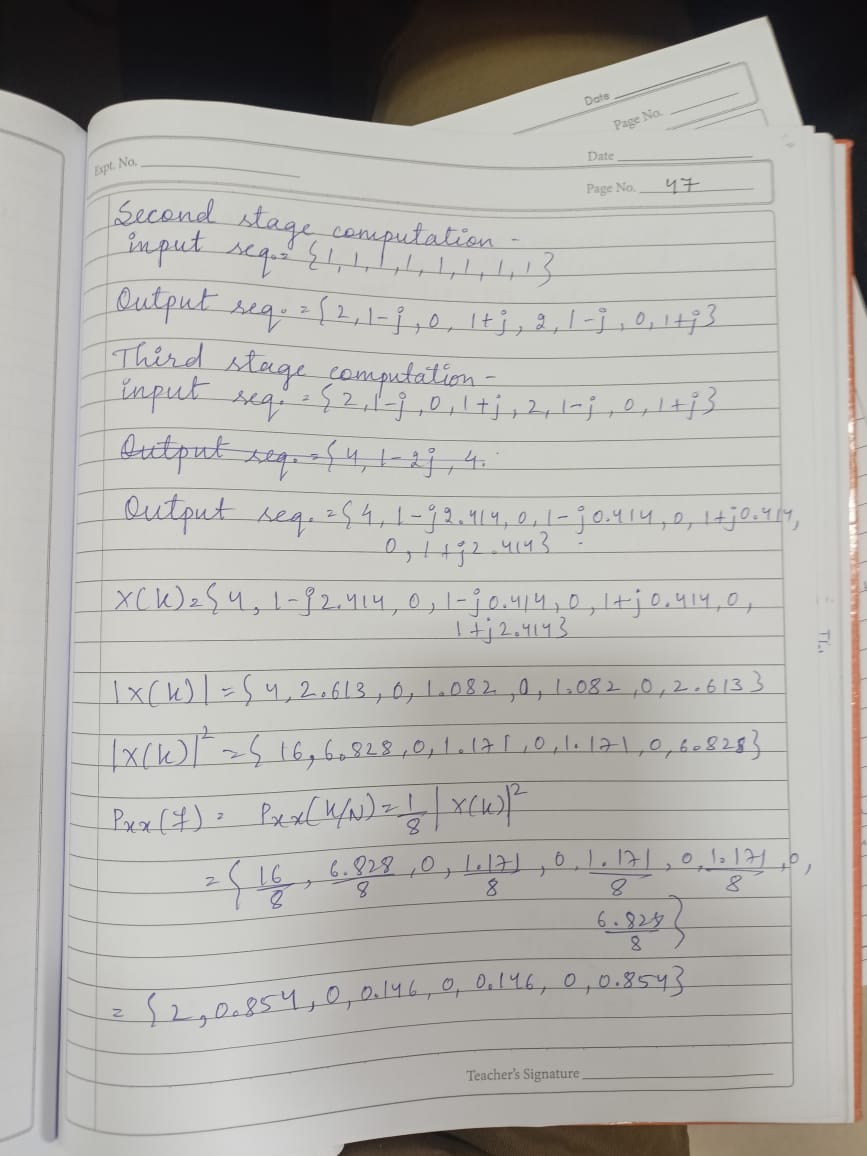 Date
Page No.
Expt. No.
Date
Page No. 47
Second stage computation -
input seq. = {1, 1, 1, 1, 1, 1, 1, 1}
Output seq. = {2, 1-j, 0, 1+j, 2, 1-j, 0, 1+j}
Third stage computation -
input seq. = {2, 1-j, 0, 1+j, 2, 1-j, 0, 1+j}
Output seq. = {4, 1-2j, 4.
Output seq. = {4, 1-j2.414, 0, 1-j0.414, 0, 1+j0.414,
0, 1+j2.414}
X(K) = {4, 1-j2.414, 0, 1-j0.414, 0, 1+j0.414, 0,
1+j2.414}
|X(K)| = {4, 2.613, 0, 1.082, 0, 1.082, 0, 2.613}
|X(K)|² = {16, 6.828, 0, 1.171, 0, 1.171, 0, 6.828}
Pxx(f) = Pxx(K/N) = 1/8 |X(K)|²
= {16/8, 6.828/8, 0, 1.171/8, 0, 1.171/8, 0, 1.171/8, 0,
6.828/8}
= {2, 0.854, 0, 0.146, 0, 0.146, 0, 0.854}
Teacher's Signature